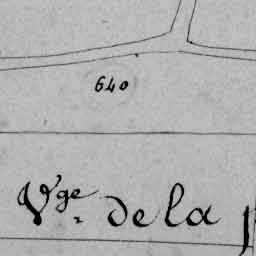 640
Vge. de la